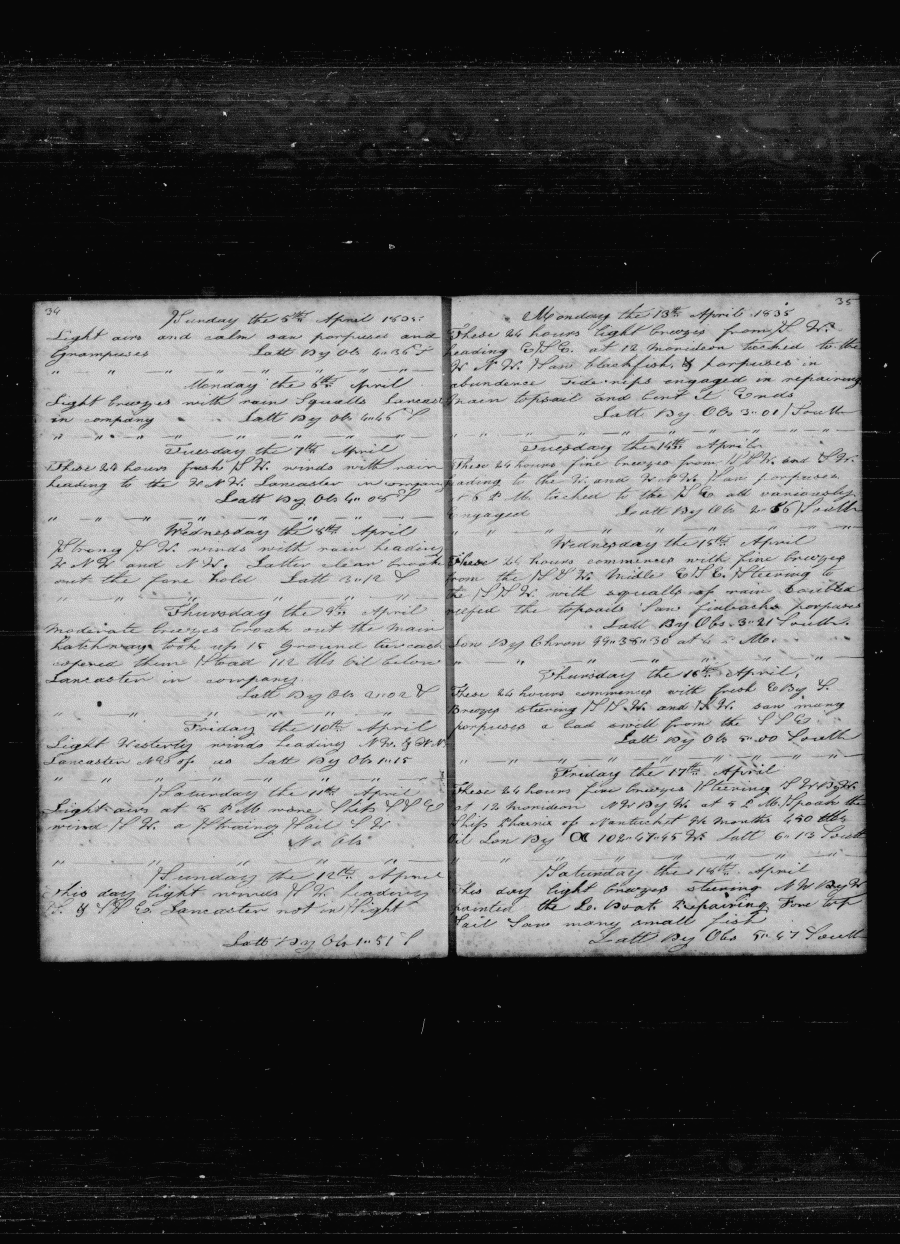 34
Sunday the 5th April 1835
Light airs and calm saw porpuses and
Grampuses Latt By Obs 4"36 S
" " " " " " " "
Monday the 6th April
Light breezes with rain Squalls Lancas
in company Latt By Obs 4"46 S
" " " " " " " "
Tuesday the 7th April
These 24 hours fresh S W. winds with rain
heading to the W N W. Lancaster in company
Latt By Obs 4"05 S
" " " " " " " "
Wednesday the 8th April
Strong S W. winds with rain heading
W N W and N W. Latter clear broak
out the fore hold Latt 3"12 S
" " " " " " " "
Thursday the 9th April
moderate breezes broak out the main
hatchway took up 15 Ground tier cask
copered them Stoad 112 bbls Oil below
Lancaster in company
Latt By Obs 2"02 S
" " " " " " " "
Friday the 10th April
Light Westerly winds heading N W. & W N
Lancaster of us Latt By Obs 1"15
" " " " " " " "
Saturday the 11th April
Light airs at 5 P M wore Ship S S E
wind S W. a Strainge Sail S W
No Obs
" " " " " " " "
Sunday the 12th April
this day light winds S W heading
S. & S S E. Lancaster not in Sight
Latt By Obs 1"51 S
35
Monday the 13th April 1835
These 24 hours light breezes from S W.
heading E S E. at 12 meridean tacked to the
W N W. Saw blackfish, & porpuses in
abundence tide rips engaged in repairing
main topsail and bent it Ends
Latt By Obs 3"01 South
" " " " " " " "
Tuesday the 14th April
These 24 hours fine breezes from and S W.
eading to the W. and W N W. Saw porpuses
5 P M tacked to the S E all variously
Engaged Latt By Obs 2"56 South
" " " " " " " "
Wednesday the 15th April
These 24 hours commences with fine breezes
from the S S W. Midle E S E. Steering to
the S S W. with squalls of rain doubled
reefed the topsails Saw finbacks porpuses
Latt By Obs 3"21 South.
Lon By Chron 99"38"30 at 4 P M.
" " " " " " " "
Thursday the 16th April,
These 24 hours commences with fresh E By S.
Breezes steering S S W. and S W. saw many
porpuses a bad swell from the S S E
Latt By Obs 5"00 South
" " " " " " " "
Friday the 17th April
These 24 hours fine breezes Steering S W By W.
at 12 meridean N W By W at 5 P M. Spoak the
Ship of Nantucket months 450 bbls
Oil Lon By 102"47"45 W. Latt 6"13 South
" " " " " " " "
Saturday the 18th April
this day light breezes steering N W By W
painted the L. Boat Repairing Fore top
Sail Saw many small fish
Latt By Obs 5"47 South